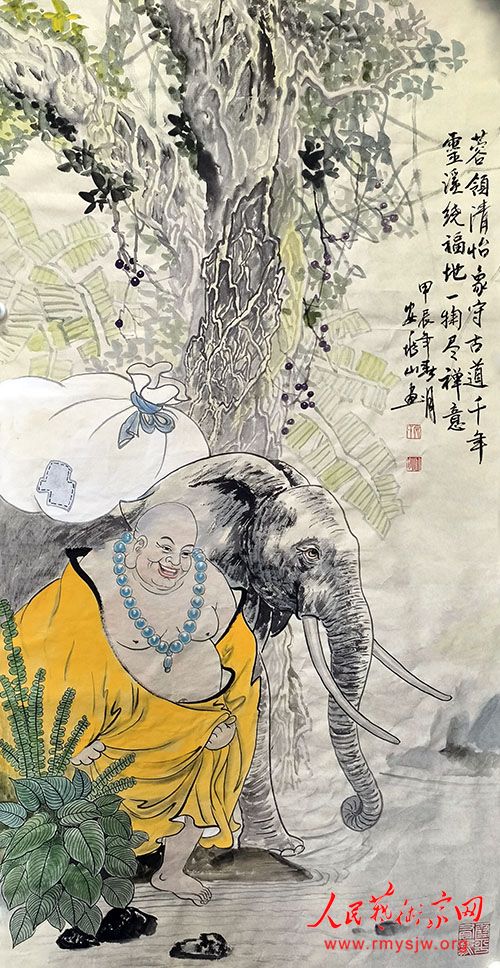 蓉领清怡象守古道千年
霊溪绕福地一掬尽禅意
甲辰年春月
安 山画
人民藝術家网
www.rmysjw.org